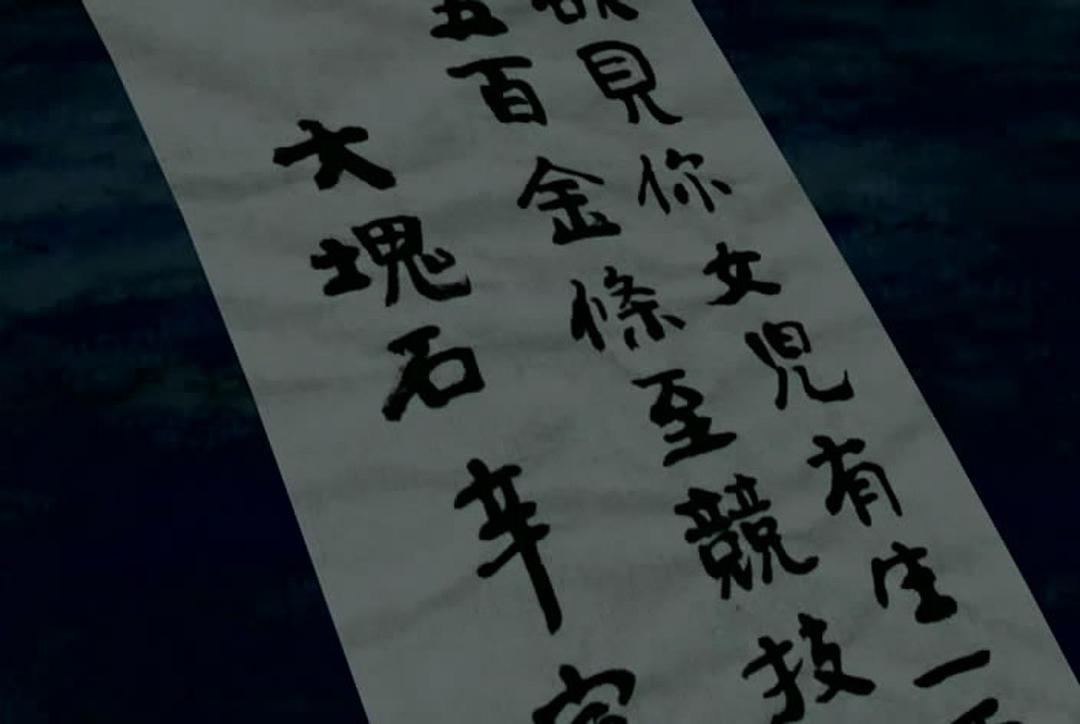 欲見你女児有生一
五百金條至競技
大塊石辛